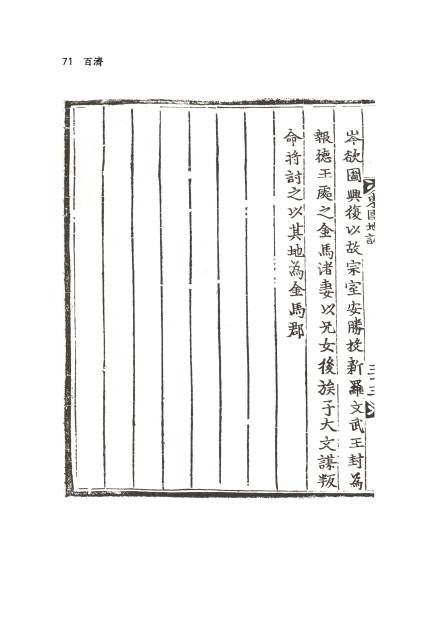 71 百濟
東國地誌
岑欲圖興復以故宗室安勝投新羅文武王封為
報德王處之金馬渚妻以兄女後族子大文謀叛
命將討之以其地為金馬郡